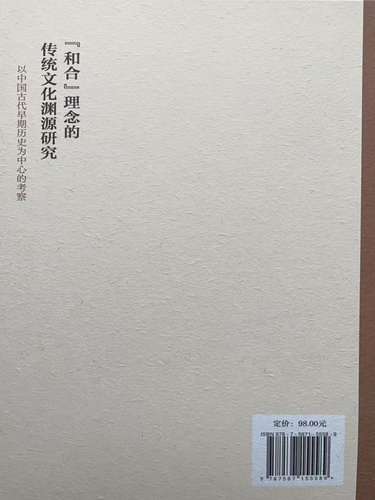 『和合』理念的
传统文化渊源研究
以中国古代早期历史为中心的考察
定价：98.00元
ISBN 978-7-5671-5558-9
9 787567 155589 >